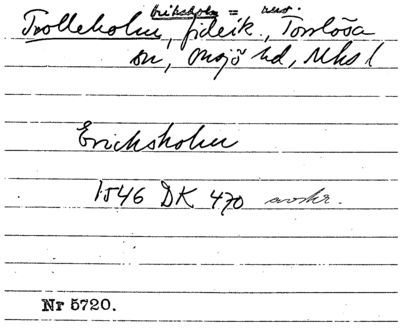 Trolleholm, fideik., Torrlösa
sn, Onsjö hd, Mhs l
Erichsholm
1546 DK 470 avskr.
Nr 5720.